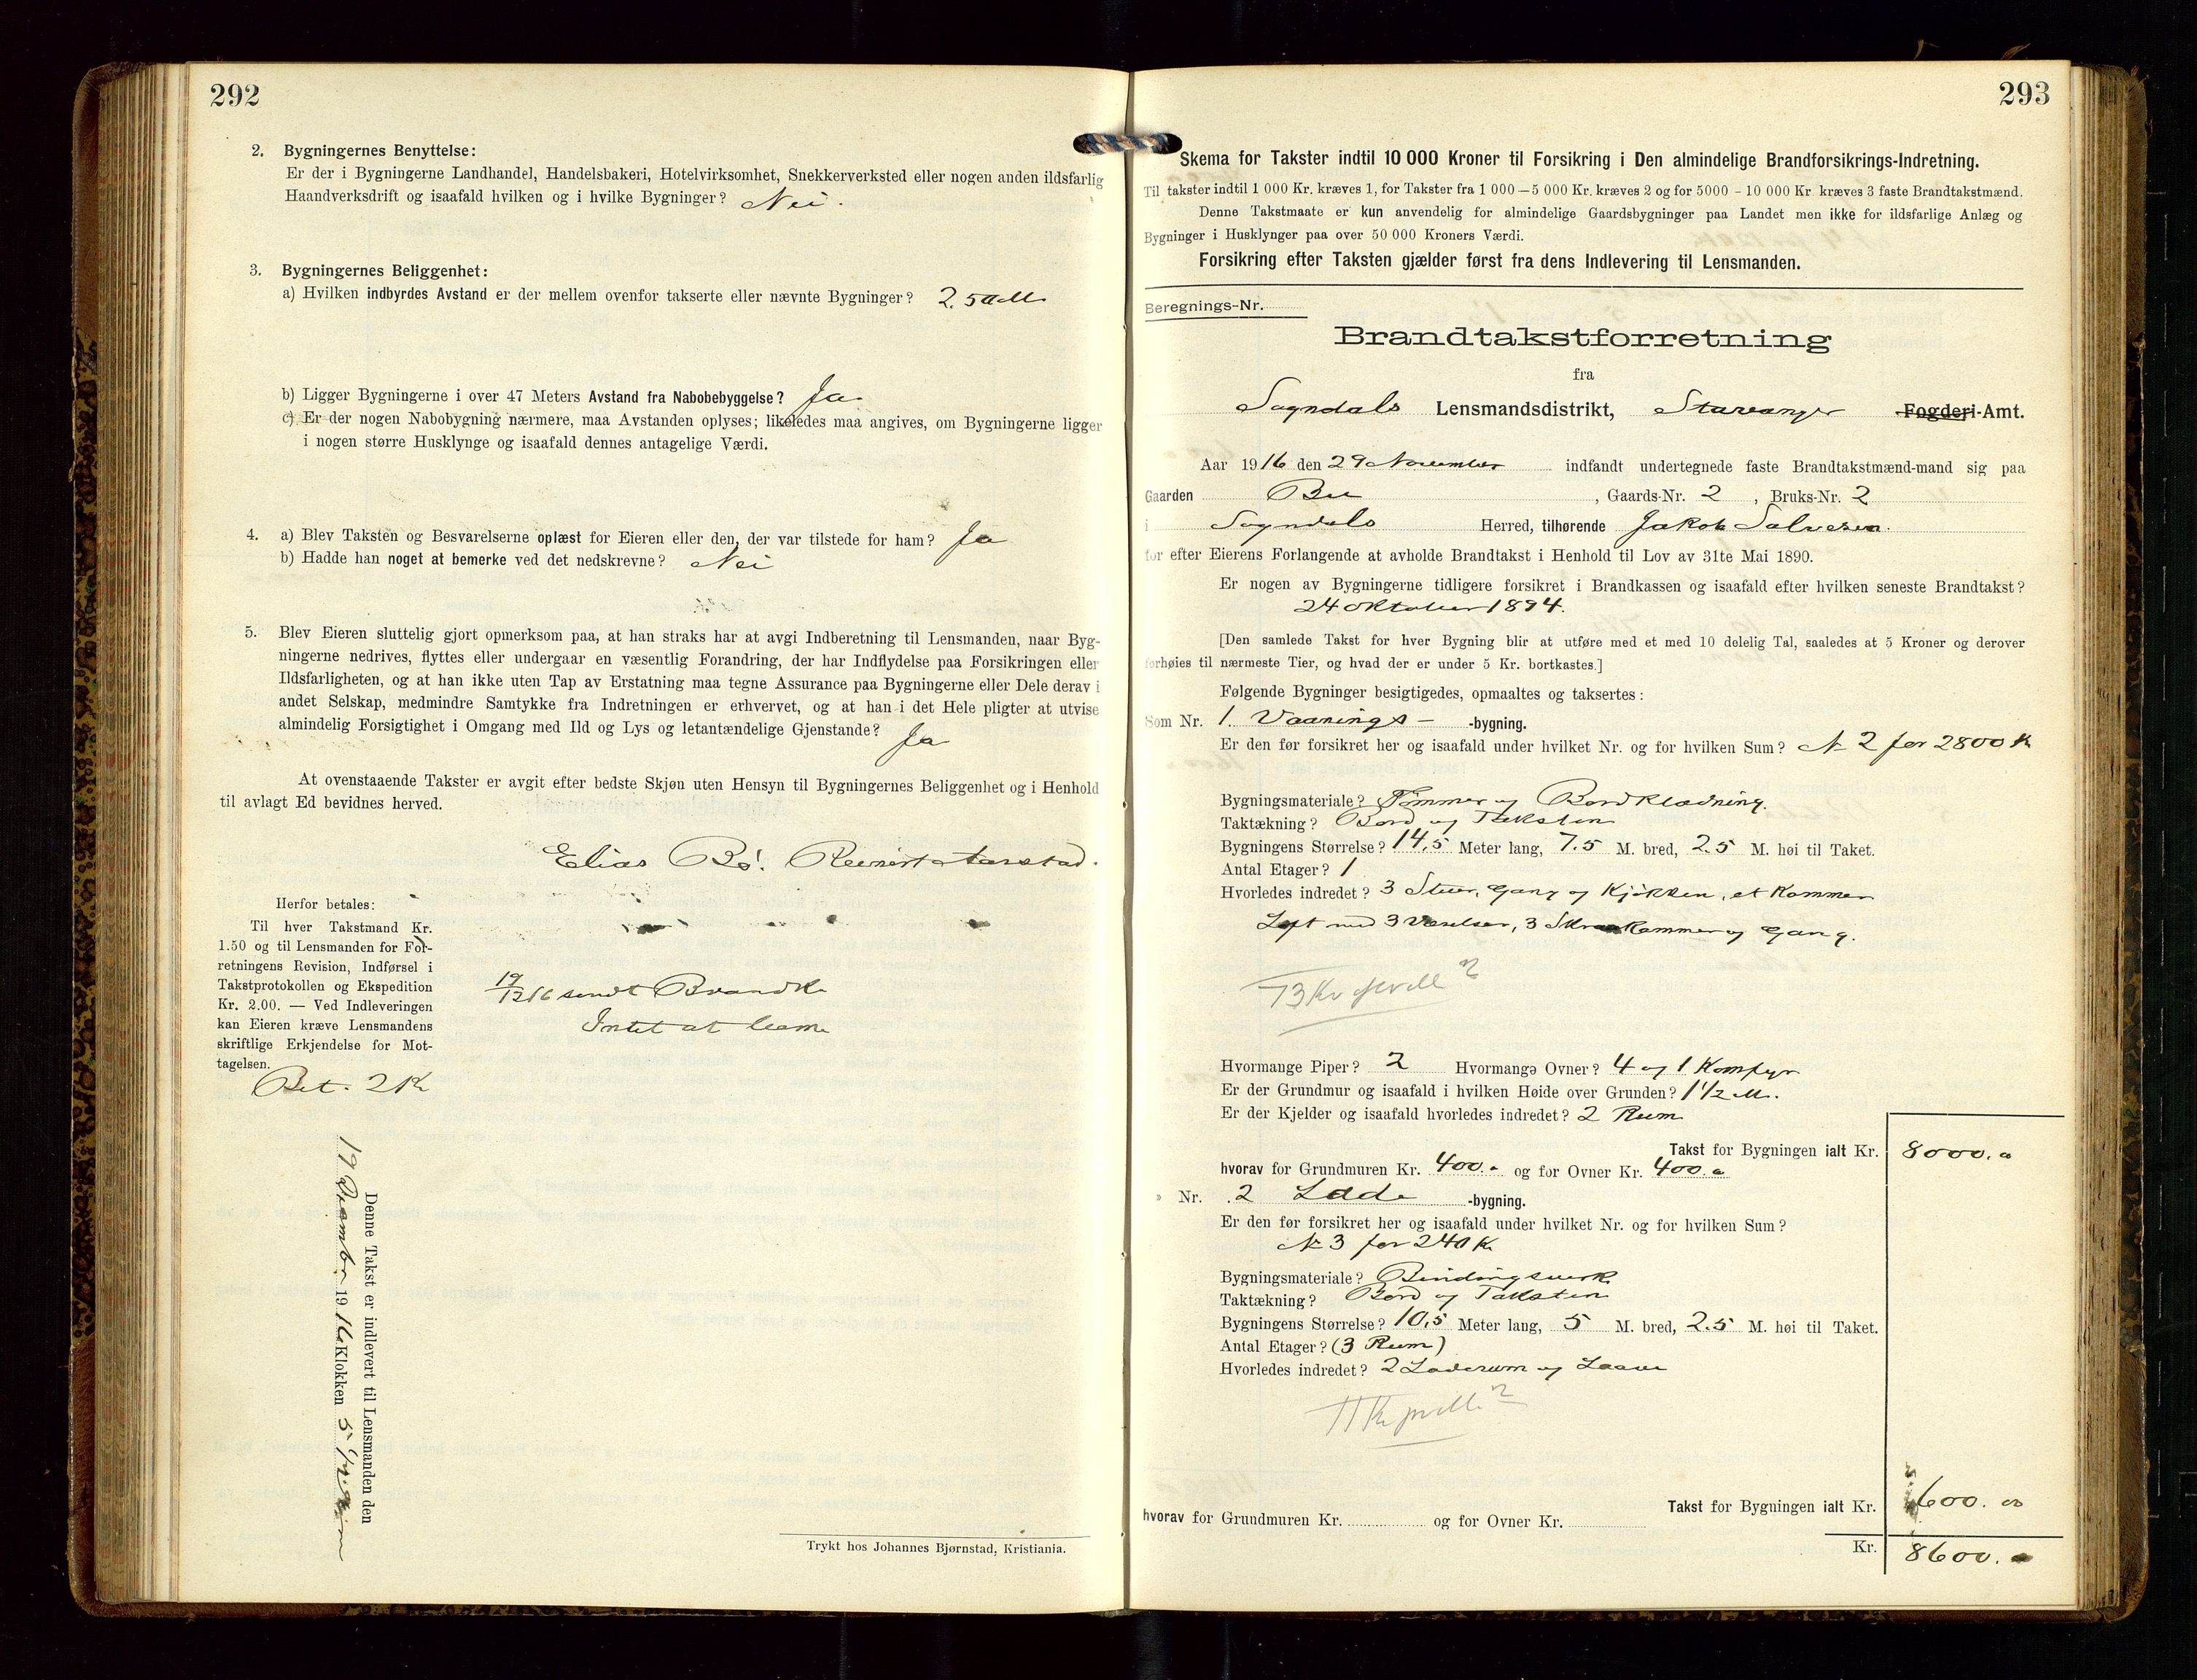 292
2. Bygningernes Benyttelse:
Er der i Bygningerne Landhandel, Handelsbakeri, Hotelvirksomhet, Snekkerverksted eller nogen anden ildsfarlig
Haandverksdrift og isaafald hvilken og i hvilke Bygninger? Nei.
3. Bygningernes Beliggenhet:
a) Hvilken indbyrdes Avstand er der mellem ovenfor takserte eller nævnte Bygninger? 2.50 M
b) Ligger Bygningerne i over 47 Meters Avstand fra Nabobebyggelse? Ja
c) Er der nogen Nabobygning nærmere, maa Avstanden oplyses; likeledes maa angives, om Bygningerne ligger
i nogen større Husklynge og isaafald dennes antagelige Værdi.
4. a) Blev Taksten og Besvarelserne oplæst for Eieren eller den, der var tilstede for ham? Ja
b) Hadde han noget at bemerke ved det nedskrevne? Nei
5. Blev Eieren sluttelig gjort opmerksom paa, at han straks har at avgi Indberetning til Lensmanden, naar Byg-
ningerne nedrives, flyttes eller undergaar en væsentlig Forandring, der har Indflydelse paa Forsikringen eller
Ildsfarligheten, og at han ikke uten Tap av Erstatning maa tegne Assurance paa Bygningerne eller Dele derav i
andet Selskap, medmindre Samtykke fra Indretningen er erhvervet, og at han i det Hele pligter at utvise
almindelig Forsigtighet i Omgang med Ild og Lys og letantændelige Gjenstande? Ja
At ovenstaaende Takster er avgit efter bedste Skjøn uten Hensyn til Bygningernes Beliggenhet og i Henhold
til avlagt Ed bevidnes herved.
Elias Bø.
Herfor betales:
Til hver Takstmand Kr.
1.50 og til Lensmanden for For-
retningens Revision, Indførsel i
Takstprotokollen og Ekspedition
Kr. 2.00. — Ved Indleveringen
kan Eieren kræve Lensmandens
skriftlige Erkjendelse for Mot-
tagelsen.
Bet. 2 Kr
19/12 16 sendt Brandk.
Intet at bem
Denne Takst er indlevert til Lensmanden den
19 Decembr 1916 Klokken 5 1/2
Trykt hos Johannes Bjørnstad, Kristiania.
293
Skema for Takster indtil 10 000 Kroner til Forsikring i Den almindelige Brandforsikrings-Indretning.
Til takster indtil 1 000 Kr. kræves 1, for Takster fra 1 000—5 000 Kr. kræves 2 og for 5000 - 10 000 Kr. kræves 3 faste Brandtakstmænd.
Denne Takstmaate er kun anvendelig for almindelige Gaardsbygninger paa Landet men ikke for ildsfarlige Anlæg og
Bygninger i Husklynger paa over 50 000 Kroners Værdi.
Forsikring efter Taksten gjælder først fra dens Indlevering til Lensmanden.
Beregnings-Nr.
Brandtakstforretning
fra
Sogndals Lensmandsdistrikt, Stavanger Fogderi-Amt.
Aar 1916 den 29 November indfandt undertegnede faste Brandtakstmænd-mand sig paa
Gaarden Bu, Gaards-Nr. 2, Bruks-Nr. 2
i Sogndals Herred, tilhørende Jakob Salvesen.
for efter Eierens Forlangende at avholde Brandtakst i Henhold til Lov av 31te Mai 1890.
Er nogen av Bygningerne tidligere forsikret i Brandkassen og isaafald efter hvilken seneste Brandtakst?
24 oktober 1894.
[Den samlede Takst for hver Bygning blir at utføre med et med 10 delelig Tal, saaledes at 5 Kroner og derover
forhøies til nærmeste Tier, og hvad der er under 5 Kr. bortkastes.]
Følgende Bygninger besigtigedes, opmaaltes og taksertes:
Som Nr. 1. Vaanings- -bygning.
Er den før forsikret her og isaafald under hvilket Nr. og for hvilken Sum? N 2 for 2800 K
Bygningsmateriale? Tømmer og Bordklædning.
Taktækning? Bord og Taksten
Bygningens Størrelse? 14,5 Meter lang, 7.5 M. bred, 2.5 M. høi til Taket.
Antal Etager? 1
Hvorledes indredet? 3 Stuer, Gang og Kjøkken, et Kammer
Loft med 3 Værelser, 3 Skraakammer og Gang.
73 Kr
Hvormange Piper? 2 Hvormange Ovner? 4 og 1 Komfyr
Er der Grundmur og isaafald i hvilken Høide over Grunden? 1 1/2 M.
Er der Kjelder og isaafald hvorledes indredet? 2 Rum
Takst for Bygningen ialt Kr. 8000.
hvorav for Grundmuren Kr. 400. og for Ovner Kr. 400.
» Nr. 2 Lade -bygning.
Er den før forsikret her og isaafald under hvilket Nr. og for hvilken Sum?
N 3 for 240 Kr
Bygningsmateriale? Bindingsverk
Taktækning? Bord og Taksten
Bygningens Størrelse? 10,5 Meter lang, 5 M. bred, 2.5 M. høi til Taket.
Antal Etager? (3 Rum)
Hvorledes indredet? 2 Laderum og Laave
11 Kr
Takst for Bygningen ialt Kr. 600. 00
hvorav for Grundmuren Kr. og for Ovner Kr.
Kr. 8600.